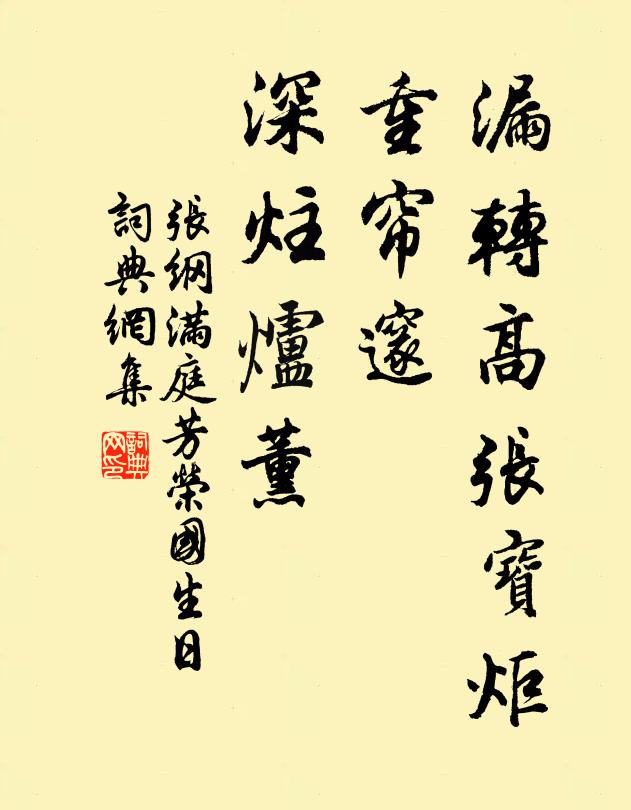 漏轉高張寶炬
重帘邃
深炷爐薰
張綱滿庭芳榮國生日
詞典網集
詞典网印